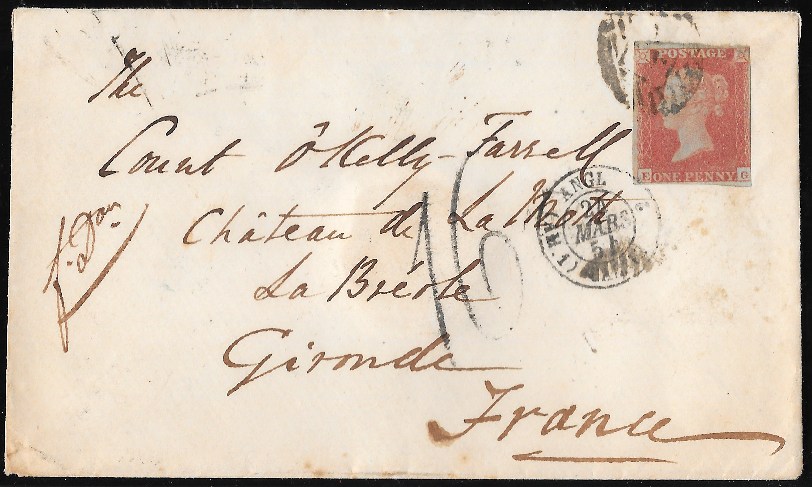 The
Count O'Kelly-Farrell
Château de La Mott
La Bréole
Gironde
France
16
POSTAGE
E ONE PENNY G
ANGL
MARS